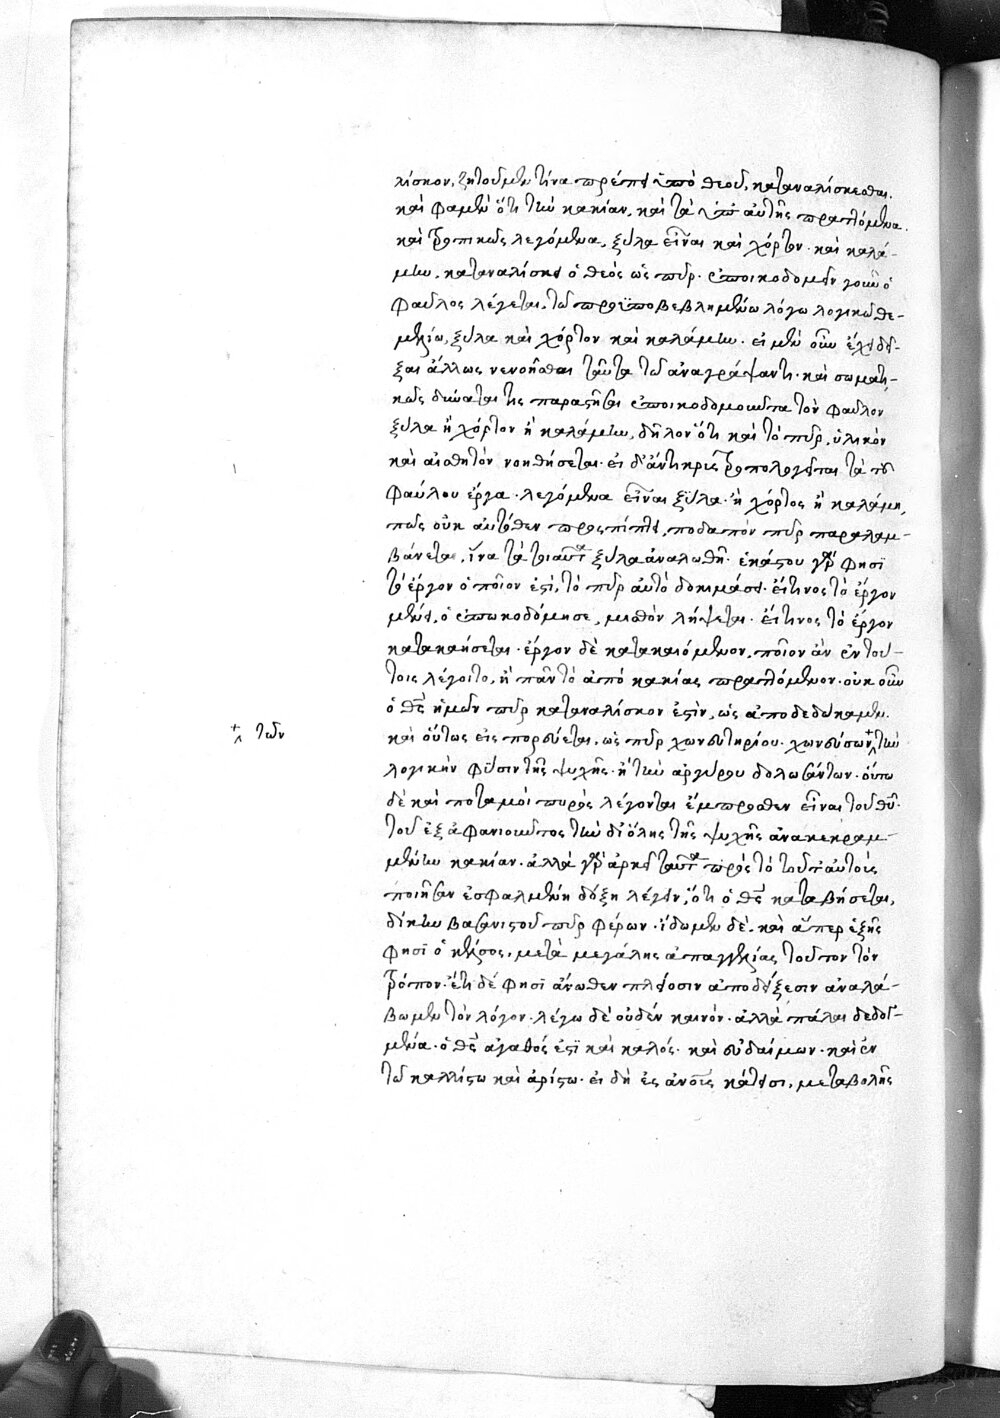 λίσκον, ζητοῦμεν τίνα πρέπει ὑπὸ θεοῦ, καταναλίσκεσθαι.
καὶ φαμὲν ὅτι τὴν κακίαν, καὶ τὰ ὑπ' αὐτῆς πραττόμενα.
καὶ τροπικῶς λεγόμενα, ξύλα εἶναι καὶ χόρτον· καὶ καλά-
μην, καταναλίσκει ὁ θεὸς ὡς πῦρ. ἐποικοδομεῖν γοῦν ὁ
φαῦλος λέγεται, τῶ προϋποβεβλημένω λόγω λογικῶ θε-
μελίω, ξύλα καὶ χόρτον καὶ καλάμην. εἰ μὲν οὖν ἔχει δεῖ-
ξαι ἄλλως νενοῆσθαι ταῦτα τῶ ἀναγράψαντι· καὶ σωματι-
κῶς δύναταί τις παραστῆσαι ἐποικοδομοῦντα τὸν φαῦλον
ξύλα ἢ χόρτον ἢ καλάμην, δῆλον ὅτι καὶ τὸ πῦρ, ὑλικὸν
καὶ αἰσθητὸν νοηθήσεται· εἰ δ' ἄντικρις τροπολογεῖται τὰ τοῦ
φαύλου ἔργα· λεγόμενα εἶναι ξύλα· ἢ χόρτος ἢ καλάμη,
πῶς οὐκ αὐτόθεν προσπίπτει, ποδαπὸν πῦρ παραλαμ-
βάνεται, ἵνα τὰ τοιαῦτα ξύλα ἀναλωθῆ· ἑκάστου γὰρ φησὶ
τὸ ἔργον ὁποῖον ἐστὶ, τὸ πῦρ αὐτὸ δοκιμάσει· εἴ τινος τὸ ἔργον
μενεῖ, ὃ ἐπωκοδόμησε, μισθὸν λήψεται. εἴ τινος τὸ ἔργον
κατακαήσεται· ἔργον δὲ κατακαιόμενον, ποῖον ἂν ἐν τού-
τοις λέγοιτο, ἢ πᾶν τὸ ἀπὸ κακίας πραττόμενον. οὐκοῦν
ὁ θς ἡμῶν πῦρ καταναλίσκον ἐστὶν, ὡς ἀποδεδώκαμεν.
καὶ οὕτως εἰσπορεύεται, ὡς πῦρ χωνευτηρίου· χωνεύσων τὴν
+ τῶν
λογικὴν φύσιν τῆς ψυχῆς· ἢ τὴν ἀργύρου δολωσάντων· οὕτω
δὲ καὶ ποταμοὶ πυρὸς λέγονται ἔμπροσθεν εἶναι τοῦ θῦ·
τοῦ ἐξαφανιοῦντος τὴν δι' ὅλης τῆς ψυχῆς ἀνακεκραμ-
μένην κακίαν· ἀλλὰ γὰρ ἀρκεῖ ταῦτα πρὸς τὸ τοῦτ' αὐτοὺς
ποιῆσαν ἐσφαλμένη δόξη λέγειν, ὅτι ὁ θς καταβήσεται,
δίκην βασανιστοῦ πῦρ φέρων. ἴδωμεν δὲ, καὶ ἅπερ ἑξῆς
φησὶ ὁ κέλσος, μετὰ μεγάλης ἀπαγγελίας τοῦτον τὸν
τρόπον. ἔτι δέ φησι ἄνωθεν πλείοσιν ἀποδείξεσιν ἀναλά-
βωμεν τὸν λόγον. λέγω δὲ οὐδὲν καινὸν· ἀλλὰ πάλαι δεδογ-
μένα· ὁ θς ἀγαθός ἐστὶ καὶ καλός· καὶ εὐδαίμων· καὶ ἐν
τῶ καλλίστω καὶ ἀρίστω· εἰ δὴ ἐς ἀνους κάτεισι, μεταβολῆς